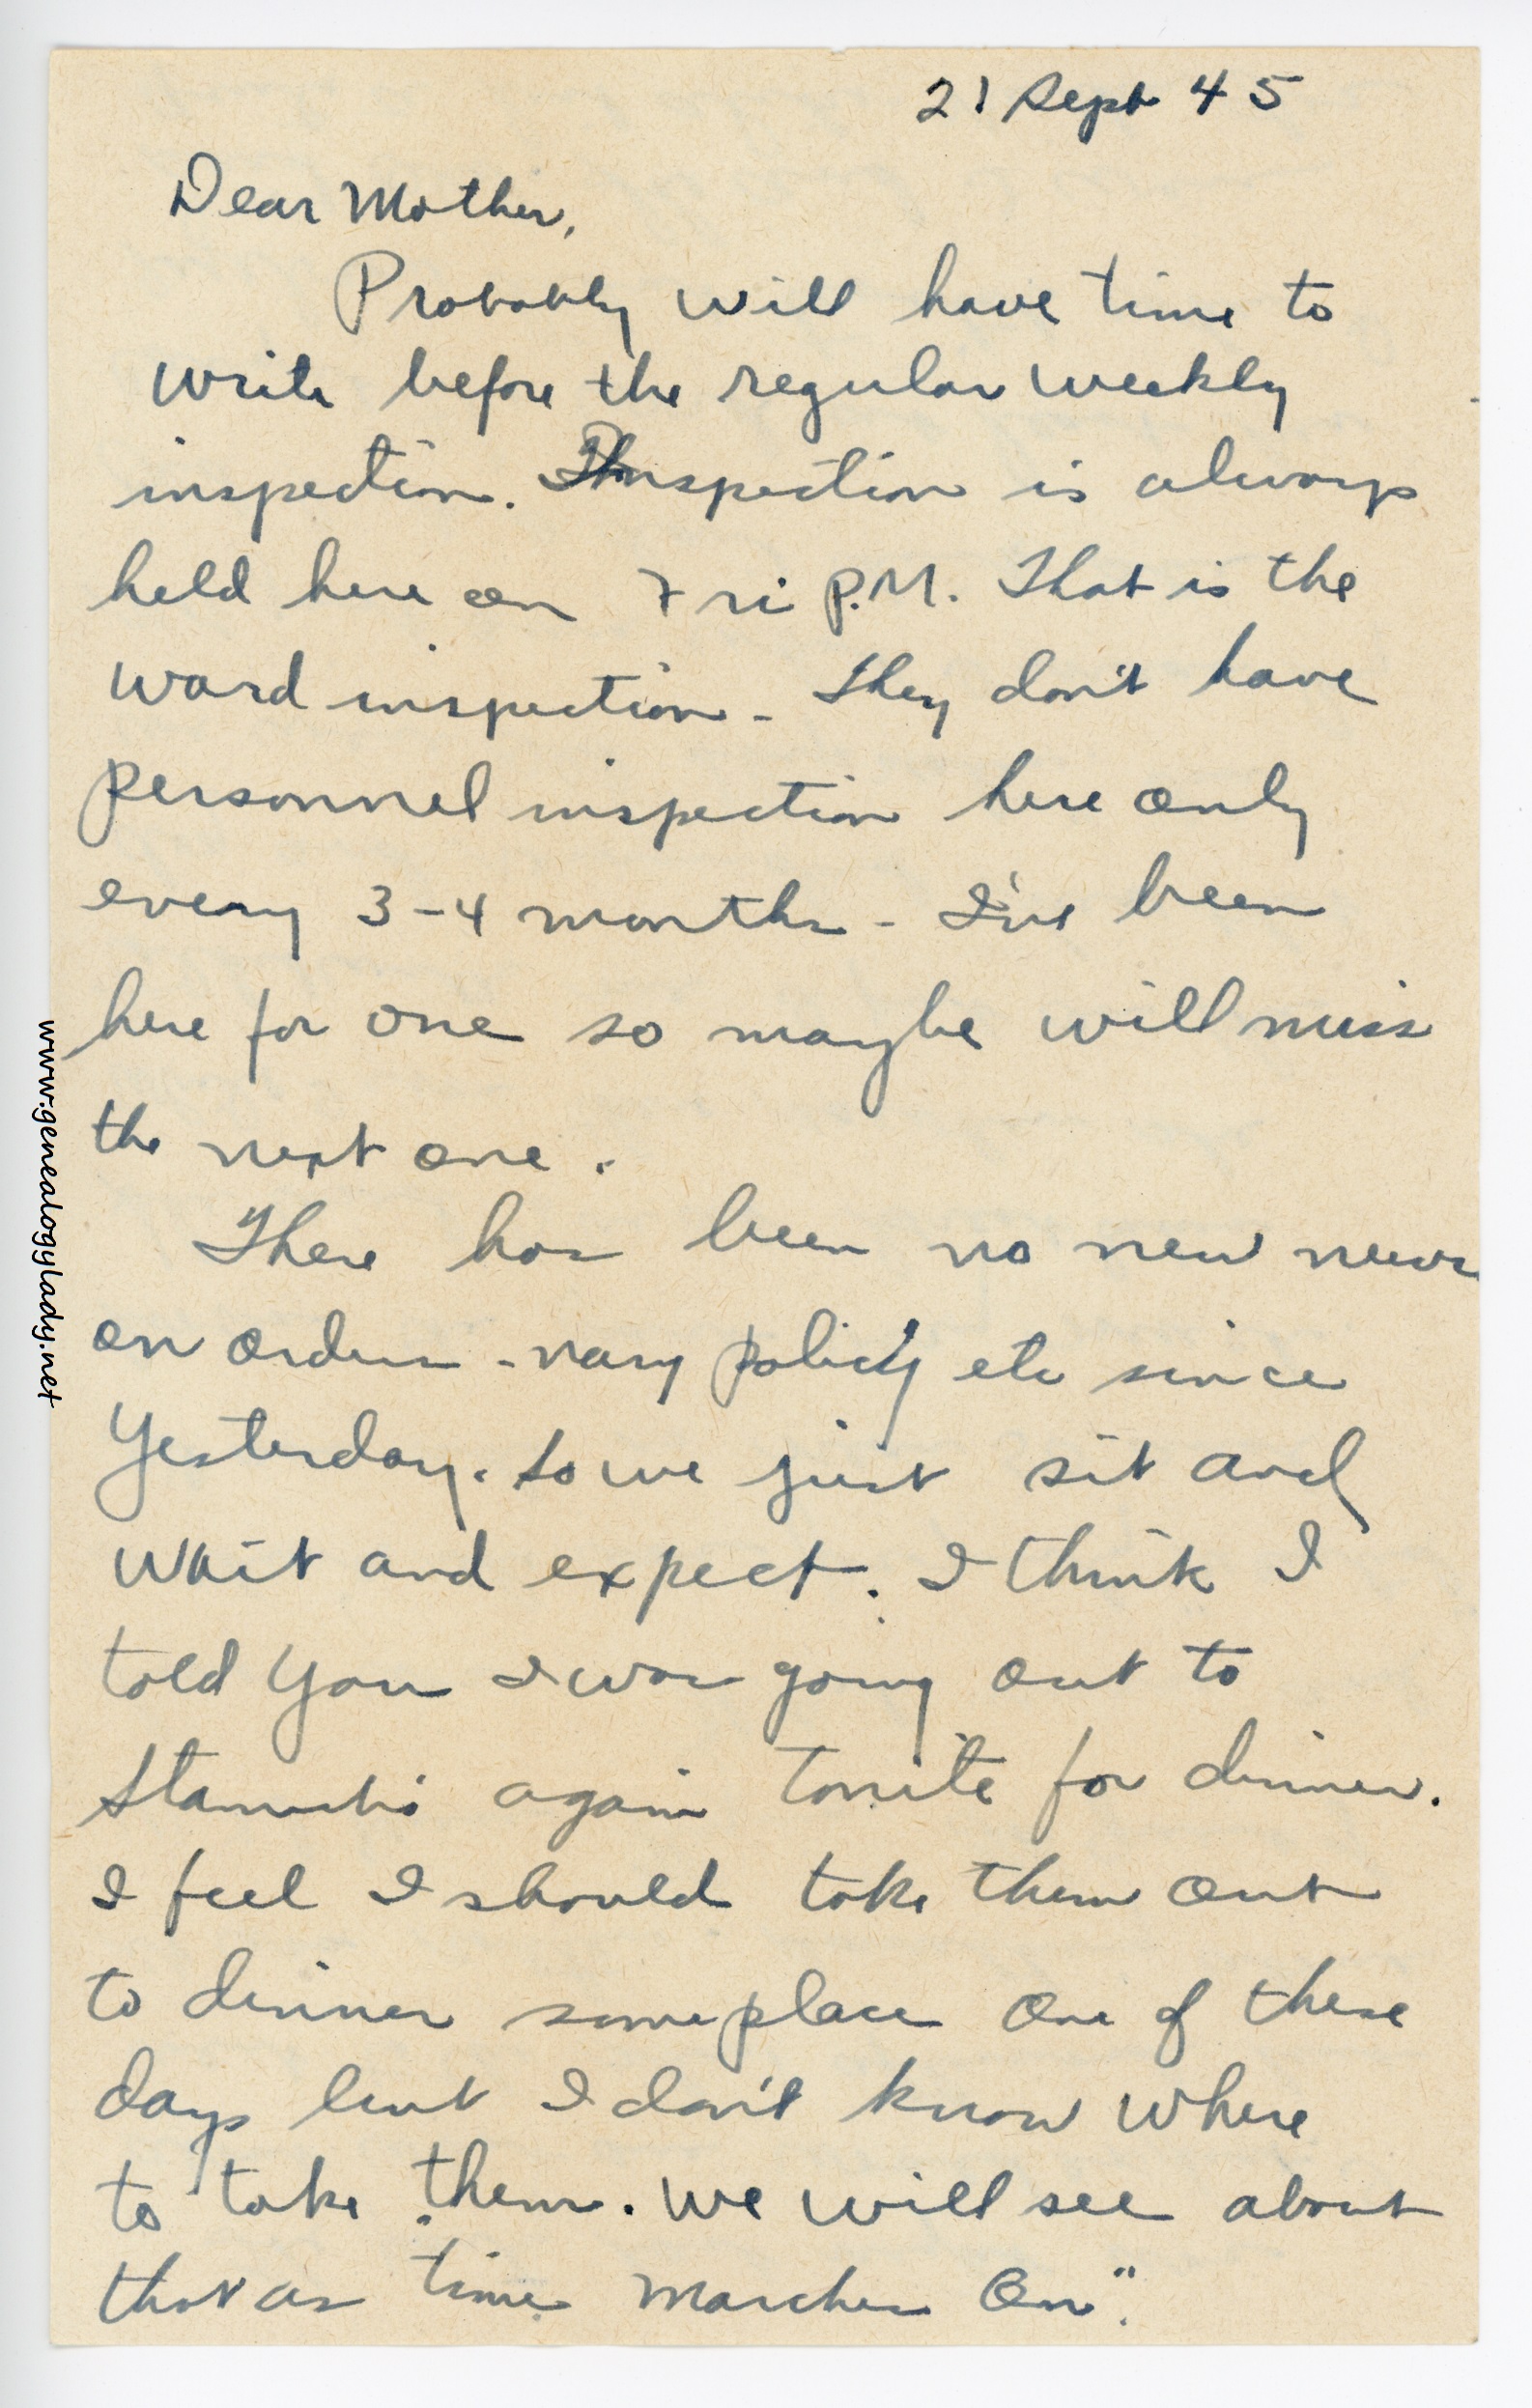 21 Sept 45
Dear Mother,
Probably will have time to
write before the regular weekly
inspection. Inspection is always
held here on Fri P.M. That is the
ward inspection - they don't have
personnel inspection here only
every 3-4 months - I've been
here for one so maybe will miss
the next one.
There has been no new news
on orders - navy policy etc since
yesterday. So we just sit and
wait and expect. I think I
told you I was going out to
again tonite for dinner.
I feel I should take them out
to dinner someplace one of these
days but I don't know where
to take them. We will see about
that as time marches on".
www.genealogylady.net